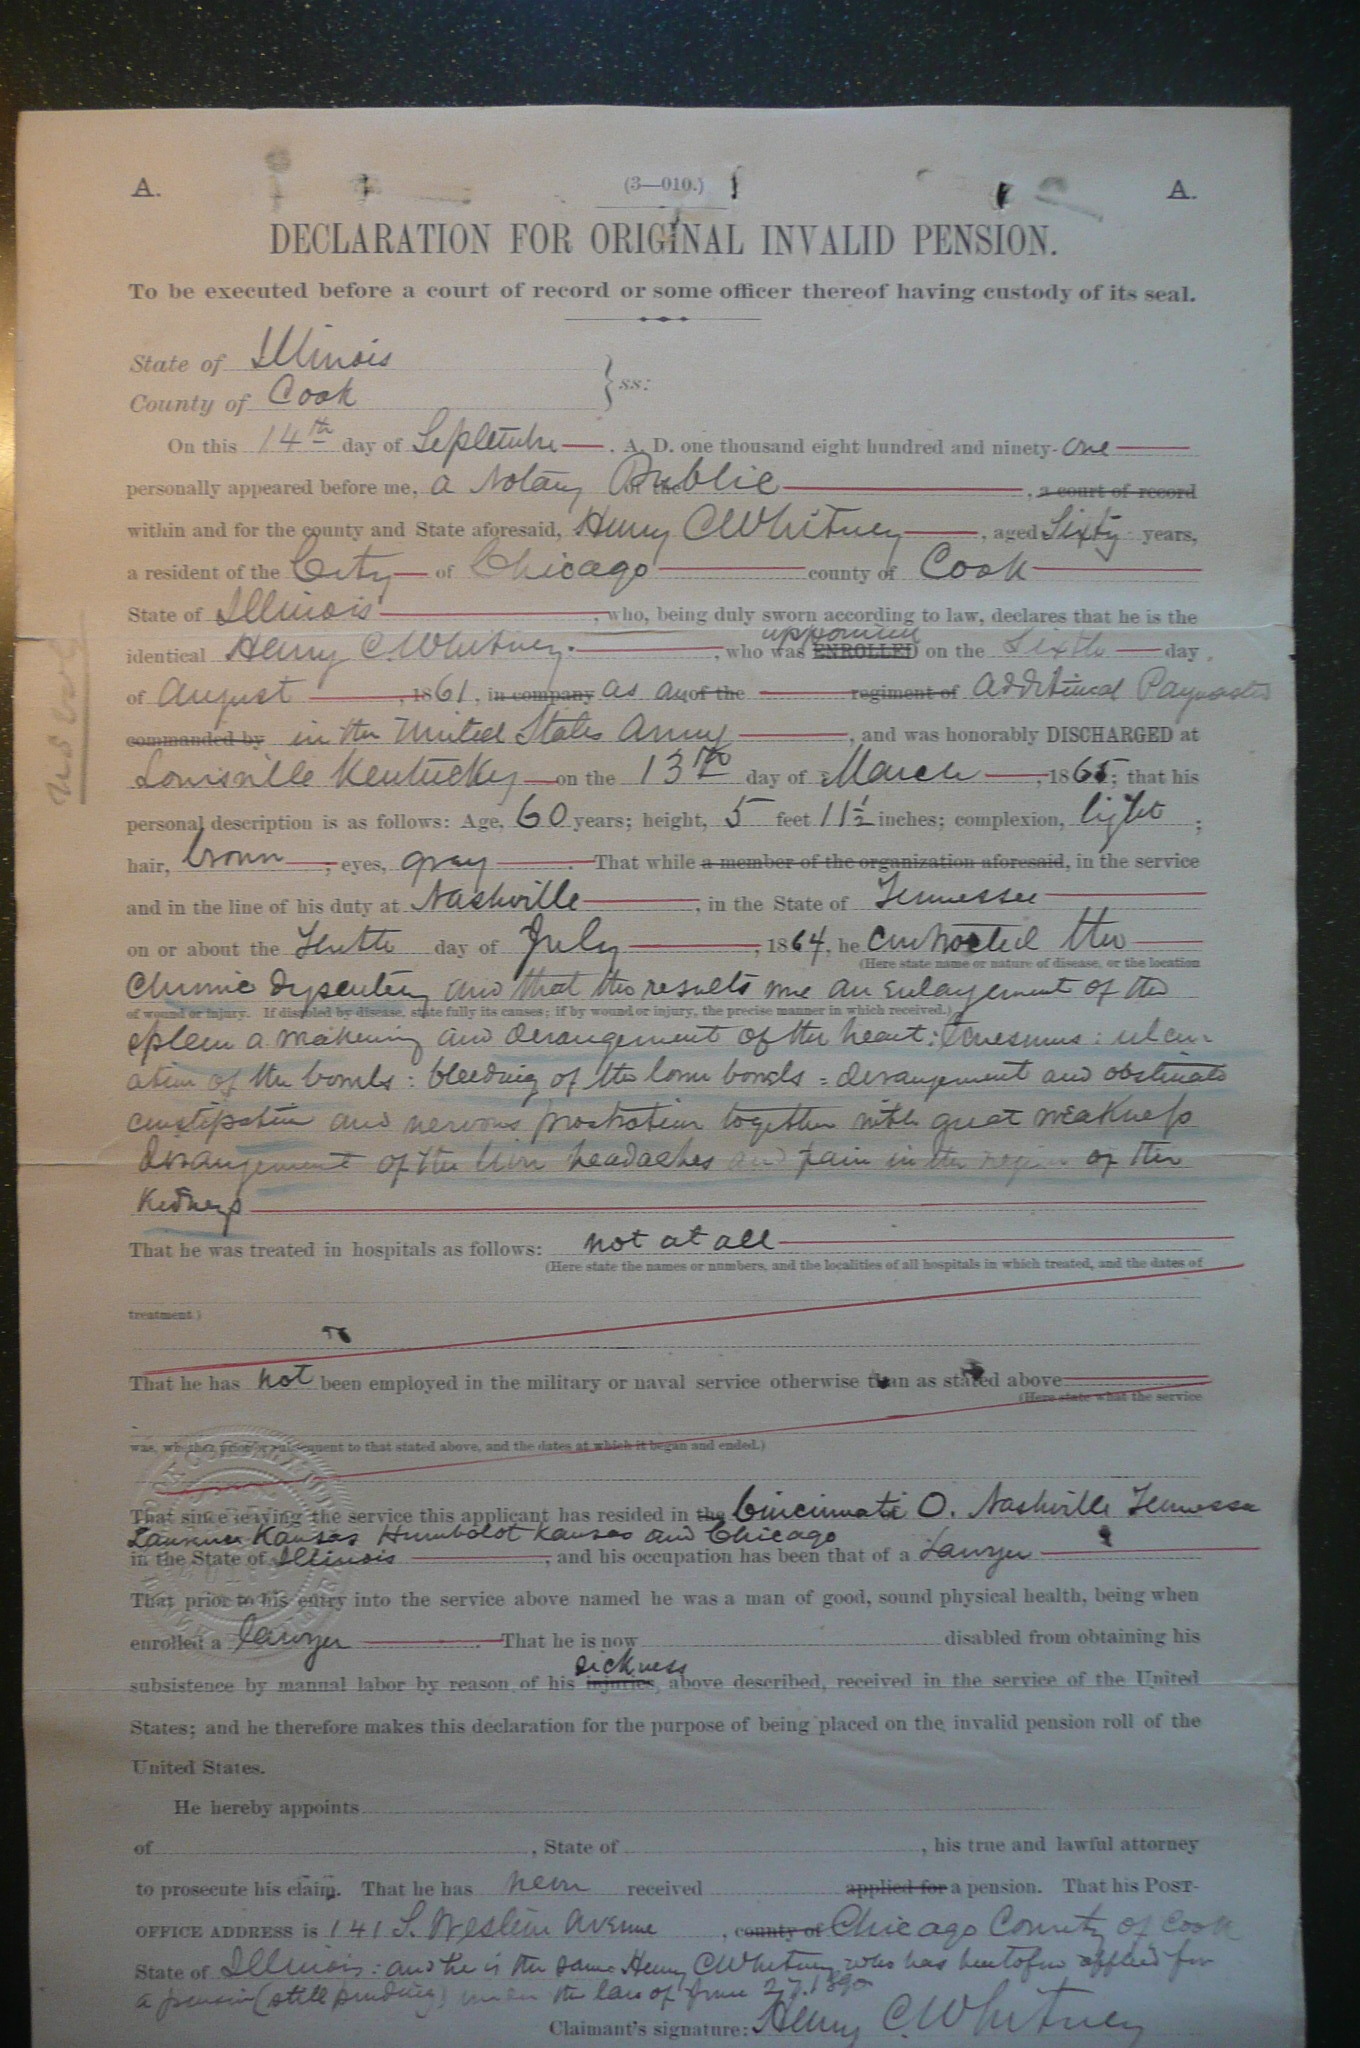 A. (3—010.) A.
DECLARATION FOR ORIGINAL INVALID PENSION.
To be executed before a court of record or some officer thereof having custody of its seal.
State of Illinois
County of Cook } ss:
On this 14th day of September, A. D. one thousand eight hundred and ninety-one
personally appeared before me, a Notary Public of the, a court of record
within and for the county and State aforesaid, Henry C Whitney, aged Sixty years,
a resident of the City of Chicago county of Cook
State of Illinois, who, being duly sworn according to law, declares that he is the
appointed
identical Henry C. Whitney., who was ENROLLED on the Sixth day
of August, 1861, in company as an of the regiment of Additional Paymaster
commanded by in the United States Army, and was honorably DISCHARGED at
Louisville Kentucky on the 13th day of March, 1865; that his
personal description is as follows: Age, 60 years; height, 5 feet 11½ inches; complexion, light;
hair, brown; eyes, gray. That while a member of the organization aforesaid, in the service
and in the line of his duty at Nashville, in the State of Tennessee
on or about the Tenth day of July, 1864, he contracted the
(Here state name or nature of disease, or the location
Chronic dysentery and that the results were an enlargement of the
of wound or injury. If disabled by disease, state fully its causes; if by wound or injury, the precise manner in which received.)
spleen a weakening and derangement of the heart: Tenesmus: ulcer-
ation of the bowels: bleeding of the lower bowels: derangement and obstinate
constipation and nervous prostration together with great weakness
derangement of the liver headaches and pain in the region of the
Kidneys
That he was treated in hospitals as follows: not at all
(Here state the names or numbers, and the localities of all hospitals in which treated, and the dates of
treatment.)
That he has not been employed in the military or naval service otherwise than as stated above
(Here state what the service
was, whether prior or subsequent to that stated above, and the dates at which it began and ended.)
That since leaving the service this applicant has resided in the Cincinnati O. Nashville Tennessee
Lawrence Kansas Humboldt Kansas and Chicago
in the State of Illinois, and his occupation has been that of a Lawyer
That prior to his entry into the service above named he was a man of good, sound physical health, being when
enrolled a lawyer. That he is now disabled from obtaining his
sickness
subsistence by manual labor by reason of his injuries, above described, received in the service of the United
States; and he therefore makes this declaration for the purpose of being placed on the invalid pension roll of the
United States.
He hereby appoints
of, State of, his true and lawful attorney
to prosecute his claim. That he has never received applied for a pension. That his POST-
OFFICE ADDRESS is 141 S. Western Avenue, county of Chicago County of Cook
State of Illinois: and he is the same Henry C Whitney who has heretofore applied for
a pension (still pending) under the law of June 27. 1890
Claimant's signature: Henry C. Whitney